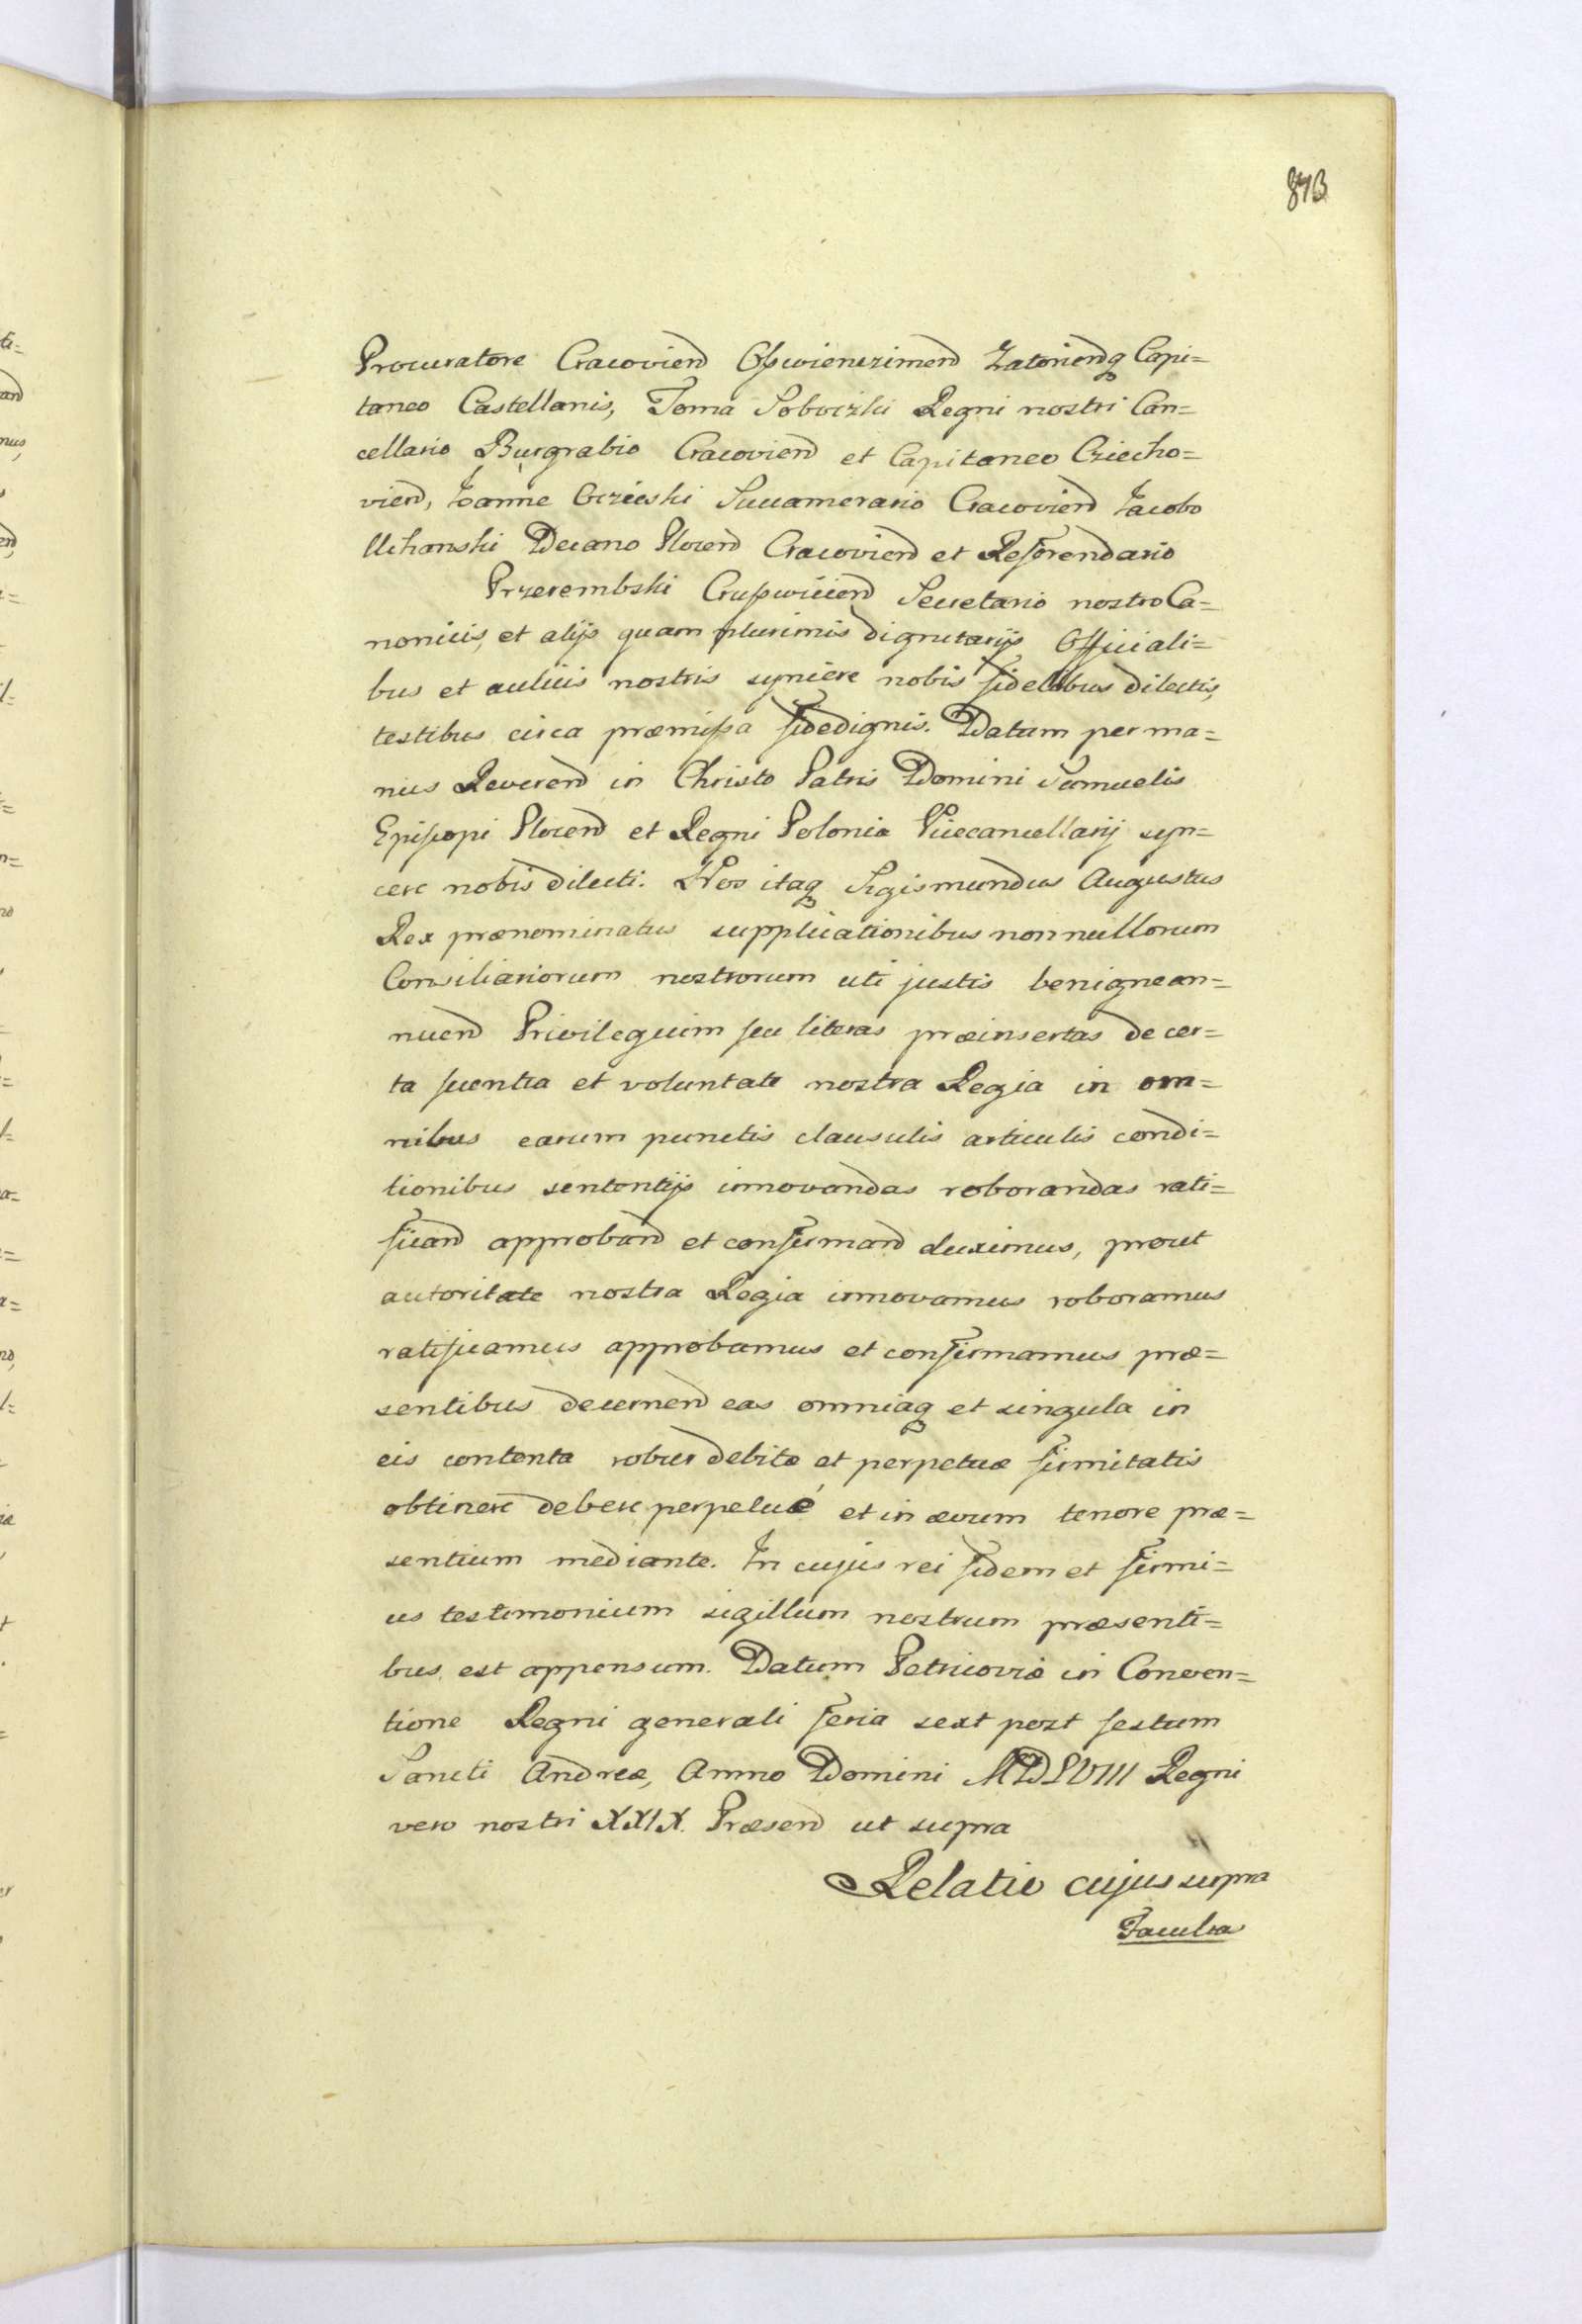 873
Procuratore Cracovien̄ Oſswienczimen̄ Zatorien̄q Capi=
taneo Castellanis, Toma Soboczki Regni nostri Can=
cellario Burgrabio Cracovien̄ et Capitaneo Cziecho=
vien̄, Joanne Oczieski Succamerario Cracovien̄ Jacobo
Uchanski Decano Plocen̄ Cracovien̄ et Referendario
Przerembski Cruſswicien̄ Secretario nostro Ca=
nonicis, et alijs quam plurimis dignitarijs Officiali=
bus et aulicis nostris syncere nobis fidelibus dilectis,
testibus circa præmiſsa fidedignis. Datum per ma=
nus Reveren̄ in Christo Patris Domini Samuelis
Epiſcopi Plocen̄ et Regni Polonia Vicecancellarij syn=
cere nobis dilecti. Nos itaq Sigismundus Augustus
Rex prænominatus supplicationibus nonnullorum
Consiliariorum nostrorum uti justis benigne an=
nuen̄ Privilegium ſeu literas præinsertas de cer=
ta ſcientia et voluntate nostra Regia in om=
nibus earum punctis clausulis articulis condi=
tionibus sententijs innovandas roborandas rati=
fican̄ approban̄ et confirman̄ duximus, prout
autoritate nostra Regia innovamus roboramus
ratificamus approbamus et confirmamus præ=
sentibus decernen̄ eas omniaq et singula in
eis contenta robur debitæ et perpetuæ firmitatis
obtinere debere perpetué et in ævum tenore præ=
sentium mediante. In cujus rei fidem et firmi=
us testimonium sigillum nostrum præsenti=
bus est appensum. Datum Petricoviæ in Conven=
tione Regni generali feria sext post festum
Sancti Andreæ, Anno Domini MDLVIII Regni
vero nostri XXIX. Præsen̄ ut supra
Relatio cujus supra